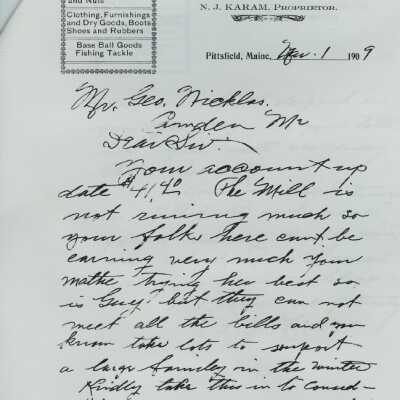 and Nuts
Clothing, Furnishings
and Dry Goods, Boots
Shoes and Rubbers
Base Ball Goods
Fishing Tackle
N. J. KARAM, PROPRIETOR.
Pittsfield, Maine, Mar. 1 1909
Mr. Geo. Nicklas.
Camden Me
Dear Sir.
Your account up
date $41.40 The Mill is
not runing much so
your folks here cant be
earning very much Your
mothe trying her best so
is Guy but they can not
meet all the bills and you
know take lots to support
a large family in the winter
Kindly take this in to Consid-